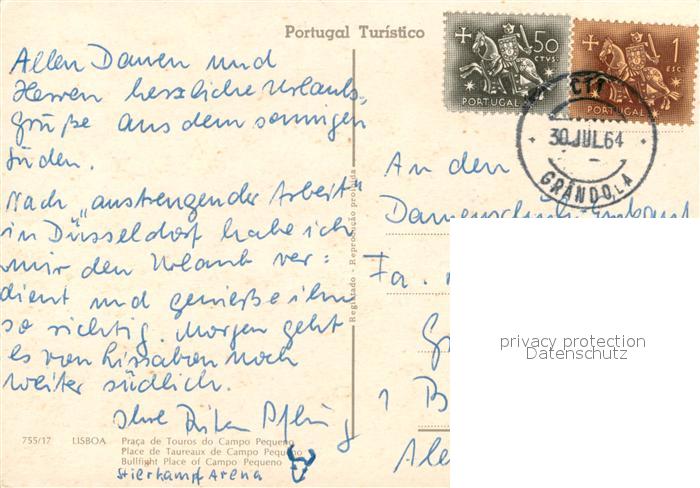 Portugal Turístico
Allen Damen und
Herren herzliche Urlaubs-
grüße aus dem sonnigen
Süden.
Nach "anstrengender Arbeit"
in Düsseldorf habe ich
mir den Urlaub ver=
dient und genieße ihn
so richtig. Morgen geht
es von Lissabon noch
weiter südlich.
Ihre
755/17 LISBOA Praça de Touros do Campo Pequeno
Place de Taureaux de Campo Pequeno
Bullfight Place of Campo Pequeno
Stierkampf Arena
Registado - Reprodução proibida
50
CTVS.
PORTUGAL
1
ESC.
PORTUGAL
CTT
30 JUL 64
GRÂNDOLA
An den
Fa.
1 B
privacy protection
Datenschutz